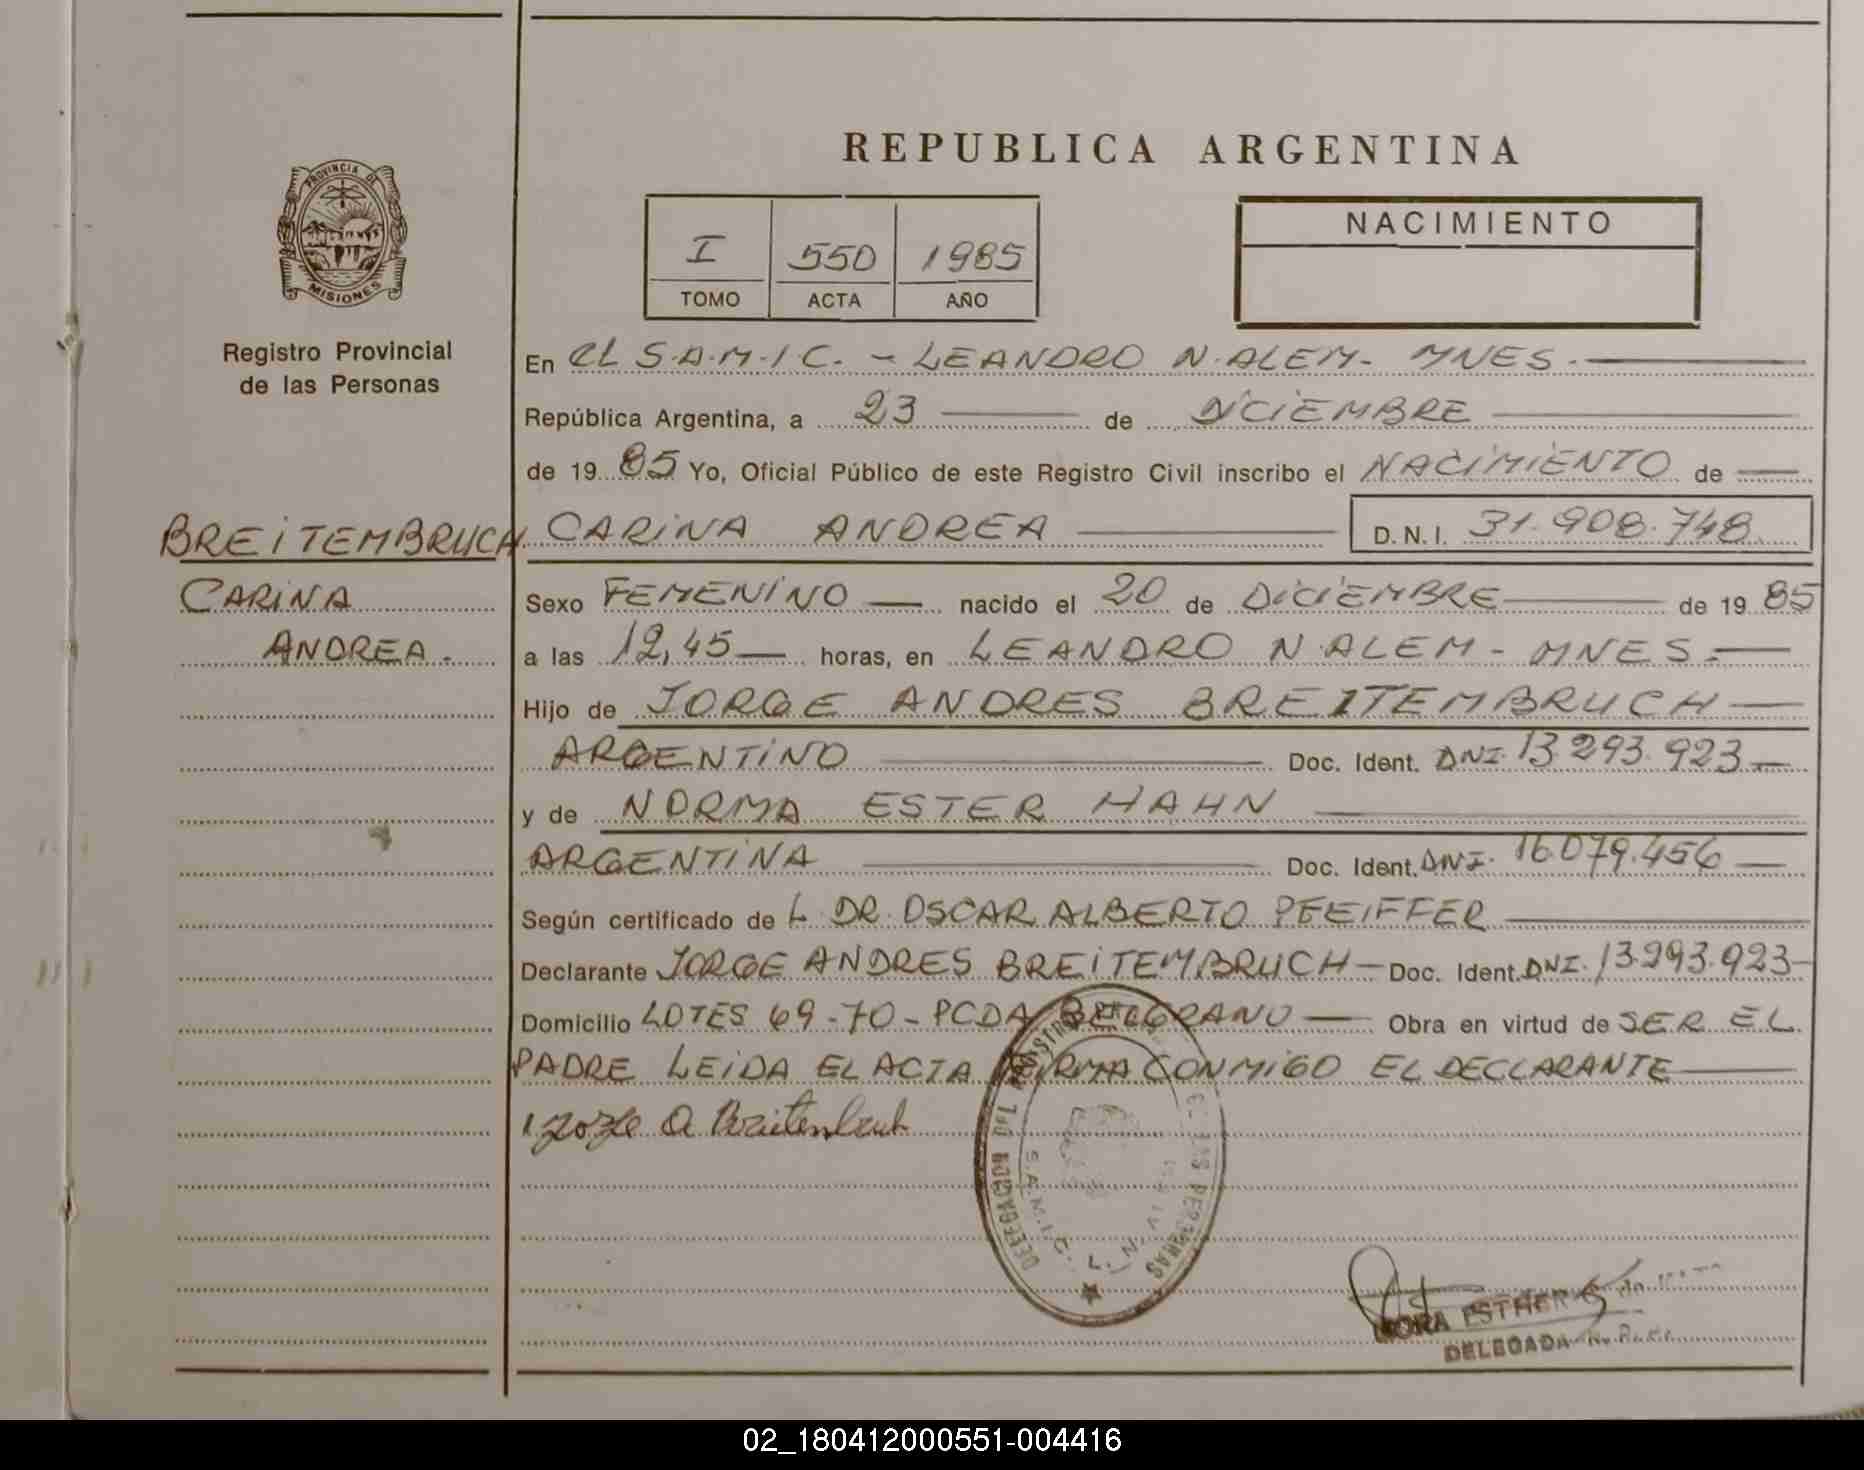 REPUBLICA ARGENTINA
PROVINCIA DE
MISIONES
Registro Provincial
de las Personas
I 550 1985
TOMO ACTA AÑO
NACIMIENTO
En EL S.A.M.I.C. - LEANDRO N. ALEM - MNES.
República Argentina, a 23 de DICIEMBRE
de 1985 Yo, Oficial Público de este Registro Civil inscribo el NACIMIENTO de
BREITEMBRUCH CARINA ANDREA D.N.I. 31.908.748
CARINA
ANDREA.
Sexo FEMENINO nacido el 20 de DICIEMBRE de 1985
a las 12,45 horas, en LEANDRO N. ALEM - MNES.
Hijo de JORGE ANDRES BREITEMBRUCH
ARGENTINO Doc. Ident. DNI. 13.293.923
y de NORMA ESTER HAHN
ARGENTINA Doc. Ident. DNI. 16.079.456
Según certificado de L DR. OSCAR ALBERTO PFEIFFER
Declarante JORGE ANDRES BREITEMBRUCH - Doc. Ident. DNI. 13.293.923
Domicilio LOTES 69-70 - PCDA BELGRANO Obra en virtud de SER EL
PADRE LEIDA EL ACTA FIRMA CONMIGO EL DECLARANTE
DELEGACION DEL REGISTRO DE LAS PERSONAS
S.A.M.I.C. L. N.
ESTHER
DELEGADA
02_180412000551-004416